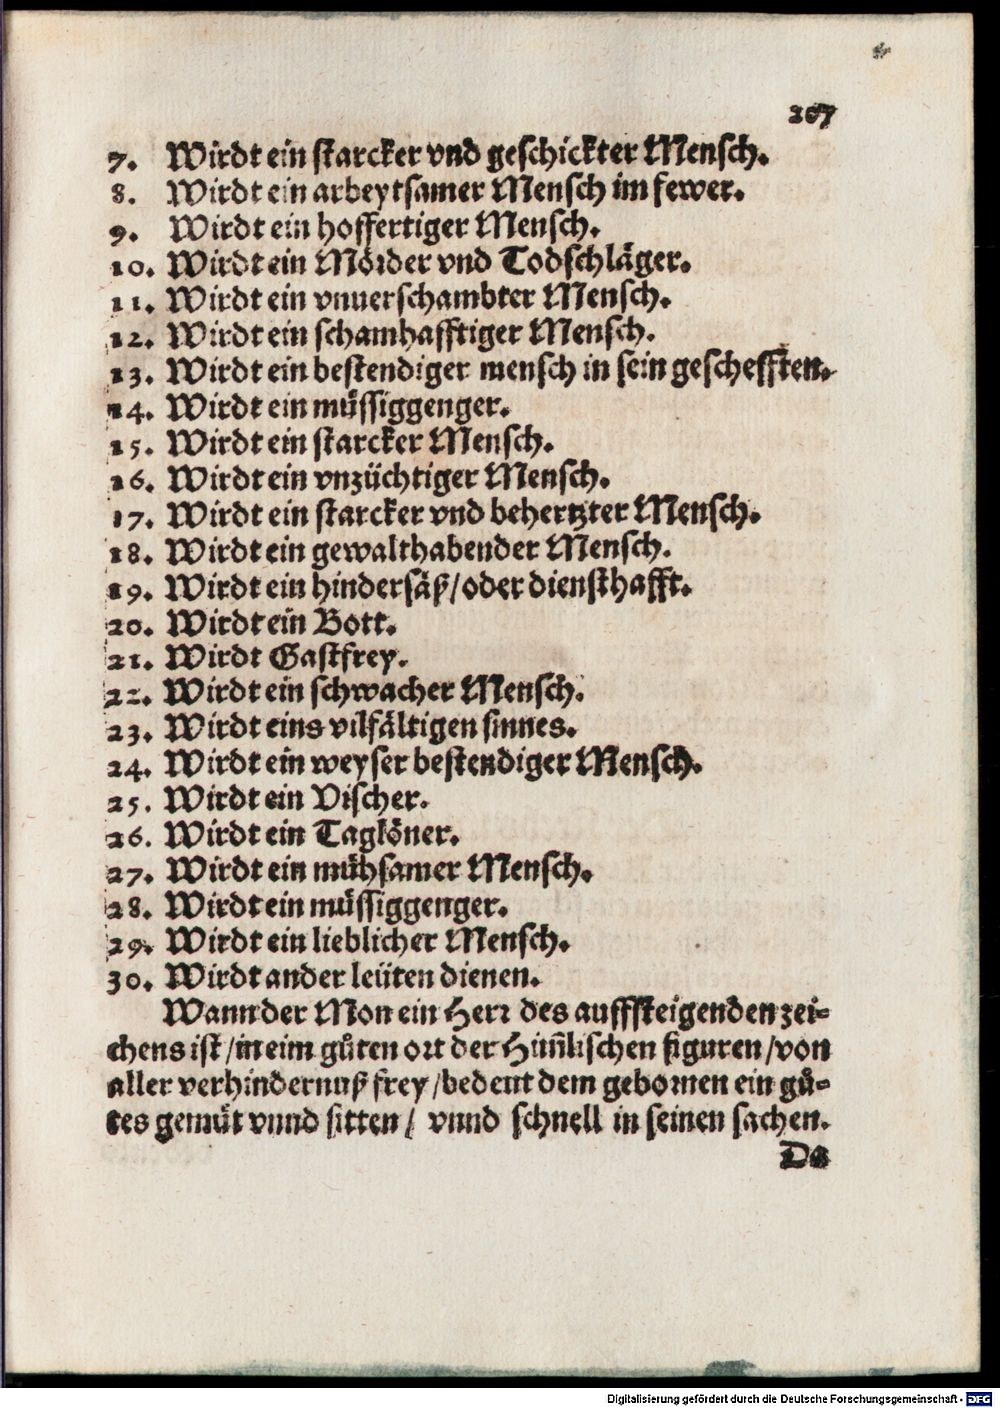 207
7. Wirdt ein starcker vnd geschickter Mensch.
8. Wirdt ein arbeytsamer Mensch im fewer.
9. Wirdt ein hoffertiger Mensch.
10. Wirdt ein Mörder vnd Todschläger.
11. Wirdt ein vnuerschambter Mensch.
12. Wirdt ein schamhafftiger Mensch.
13. Wirdt ein bestendiger mensch in sein geschefften.
14. Wirdt ein müssiggenger.
15. Wirdt ein starcker Mensch.
16. Wirdt ein vnzüchtiger Mensch.
17. Wirdt ein starcker vnd behertzter Mensch.
18. Wirdt ein gewalthabender Mensch.
19. Wirdt ein hindersäß/oder diensthafft.
20. Wirdt ein Bott.
21. Wirdt Gastfrey.
22. Wirdt ein schwacher Mensch.
23. Wirdt eins vilfältigen sinnes.
24. Wirdt ein weyser bestendiger Mensch.
25. Wirdt ein Vischer.
26. Wirdt ein Taglöner.
27. Wirdt ein mühsamer Mensch.
28. Wirdt ein müssiggenger.
29. Wirdt ein lieblicher Mensch.
30. Wirdt ander leüten dienen.
Wann der Mon ein Herr des auffsteigenden zei-
chens ist/in eim gůten ort der Him̃lischen figuren/von
aller verhindernuß frey/bedeut dem gebornen ein gů-
tes gemüt vnnd sitten/ vnnd schnell in seinen sachen.
Da
Digitalisierung gefördert durch die Deutsche Forschungsgemeinschaft - DFG